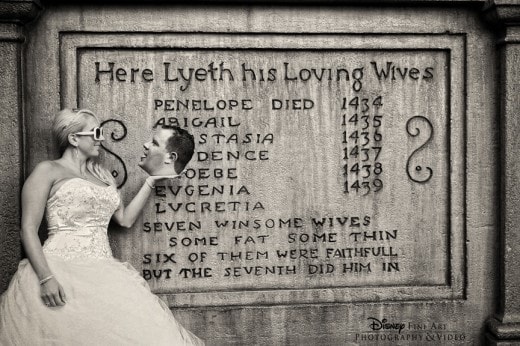 Here Lyeth his Loving Wives
PENELOPE DIED 1434
ABIGAIL 1435
STASIA 1436
DENCE 1437
OEBE 1438
EVGENIA 1439
LVCRETIA
SEVEN WINSOME WIVES
SOME FAT SOME THIN
SIX OF THEM WERE FAITHFULL
BUT THE SEVENTH DID HIM IN
Disney FINE ART
PHOTOGRAPHY & VIDEO